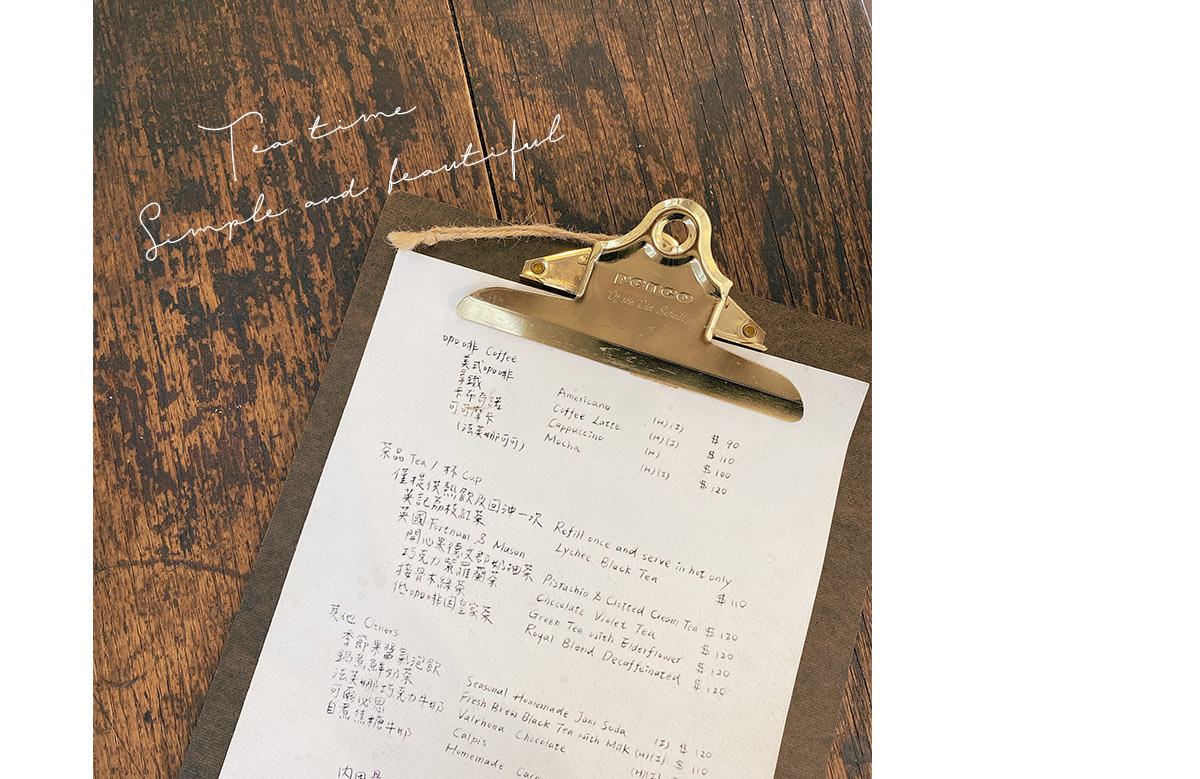 Tea time
Simple and beautiful
penco
Of the Old School
咖啡 Coffee
美式咖啡 Americano (H)(I) $ 90
拿鐵 Coffee Latte (H)(I) $ 110
卡布奇諾 Cappuccino (H) $ 100
可可摩卡 Mocha (H)(I) $ 120
(法芙娜可可)
茶品 Tea / 杯 Cup
僅提供熱飲及回沖一次 Refill once and serve in hot only
英記荔枝紅茶 Lychee Black Tea $ 110
英國 Fortnum & Mason
開心果德文郡奶油茶 Pistachio & Clotted Cream Tea $ 120
巧克力紫羅蘭茶 Chocolate Violet Tea $ 120
接骨木綠茶 Green Tea with Elderflower $ 120
低咖啡因皇家茶 Royal Blend Decaffeinated $ 120
其他 Others
季節果醬氣泡飲 Seasonal Homemade Jam Soda (I) $ 120
鍋煮鮮奶茶 Fresh Brew Black Tea with Milk (H)(I) $ 110
法芙娜巧克力牛奶 Valrhona Chocolate (H)(I)
可爾必思 Calpis
自煮焦糖牛奶 Homemade